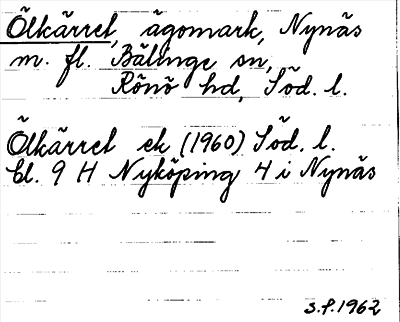 Ölkärret, ägomark, Nynäs
m. fl. Bälinge sn,
Rönö hd, Söd. l.
Ölkärret ek (1960) Söd. l.
bl. 9 H Nyköping 4 i Nynäs
S.F. 1962